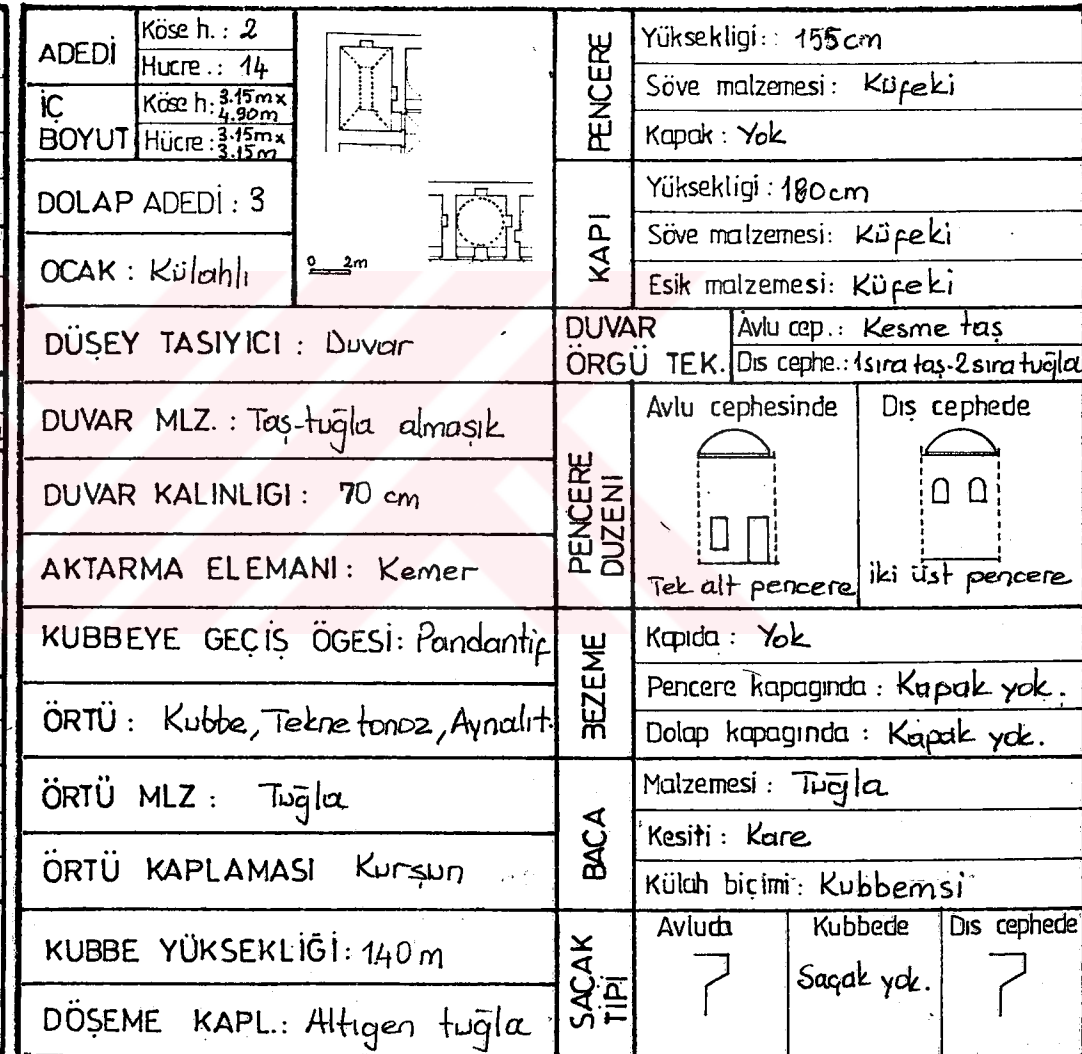 ADEDİ
Köse h. : 2
Hucre .: 14
İÇ BOYUT
Köse h: 3.15m x 4.90m
Hücre : 3.15m x 3.15m
DOLAP ADEDİ : 3
OCAK : Külahlı
0 2m
DÜŞEY TASIYICI : Duvar
DUVAR MLZ. : Taş-tuğla almaşık
DUVAR KALINLIGI : 70 cm
AKTARMA ELEMANI : Kemer
KUBBEYE GEÇİŞ ÖGESİ : Pandantif
ÖRTÜ : Kubbe, Tekne tonoz, Aynalı t.
ÖRTÜ MLZ : Tuğla
ÖRTÜ KAPLAMASI Kurşun
KUBBE YÜKSEKLİĞİ : 1.40 m
DÖŞEME KAPL.: Altıgen tuğla
PENCERE
Yüksekligi : : 155 cm
Söve malzemesi : Küfeki
Kapak : Yok
KAPI
Yüksekligi : 180 cm
Söve malzemesi: Küfeki
Esik malzemesi: Küfeki
DUVAR ÖRGÜ TEK.
Avlu cep.: Kesme taş
Dıs cephe.: 1 sıra taş-2 sıra tuğla
PENCERE DUZENI
Avlu cephesinde
Tek alt pencere
Dış cephede
iki üst pencere
BEZEME
Kapıda : Yok
Pencere kapagında : Kapak yok.
Dolap kapagında : Kapak yok.
BACA
Malzemesi : Tuğla
Kesiti : Kare
Külah biçimi : Kubbemsi
SAÇAK TİPİ
Avluda
Kubbede
Saçak yok.
Dıs cephede